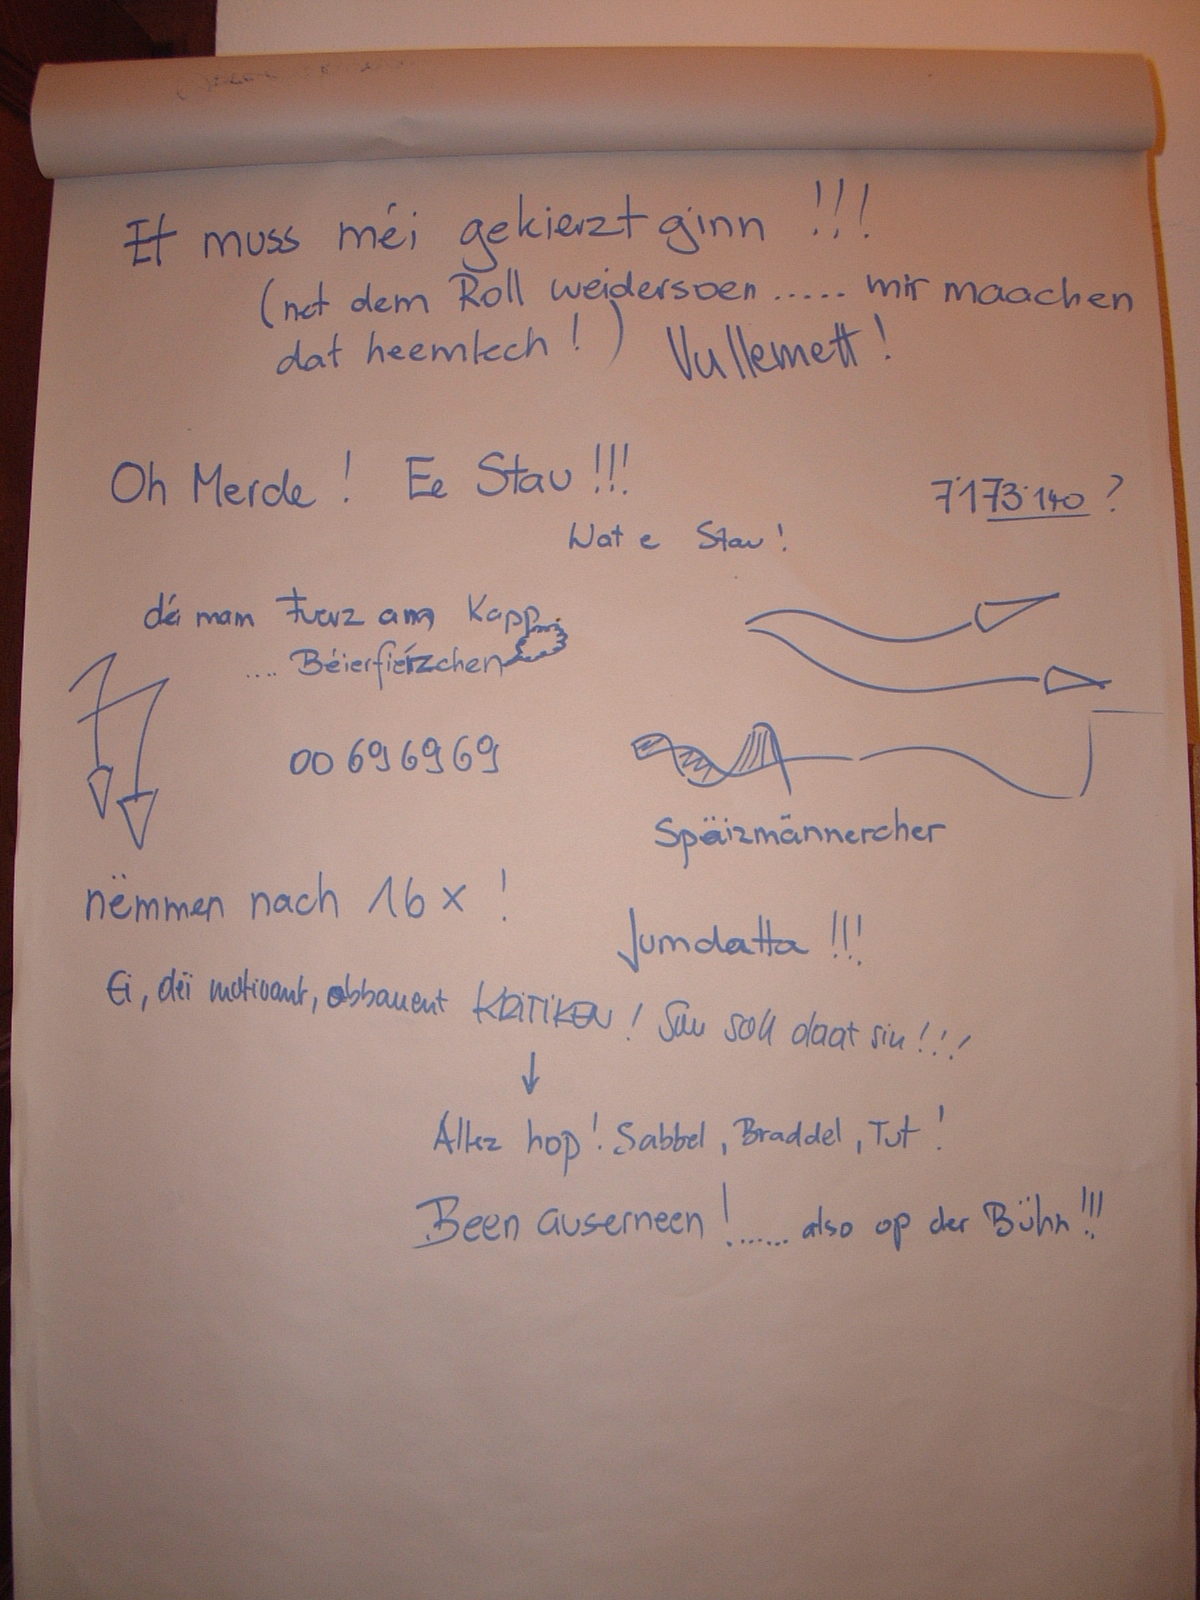 Et muss méi gekierzt ginn !!!
(net dem Roll weidersoen ..... mir maachen
dat heemlech ! ) Vullemett !
Oh Merde ! Ee Stau !!!
7173140 ?
Wat e Stau !
déi mam Fuerz am Kapp
.... Béierfierzchen
00 69 69 69
Späizmännercher
nëmmen nach 16 x !
Jumdatta !!!
Ei, déi motivant, obbauent KRITIKEN ! Sou soll daat sin !!!
Allez hop ! Sabbel , Braddel , Tut !
Been auserneen ! ...... also op der Bühn !!!